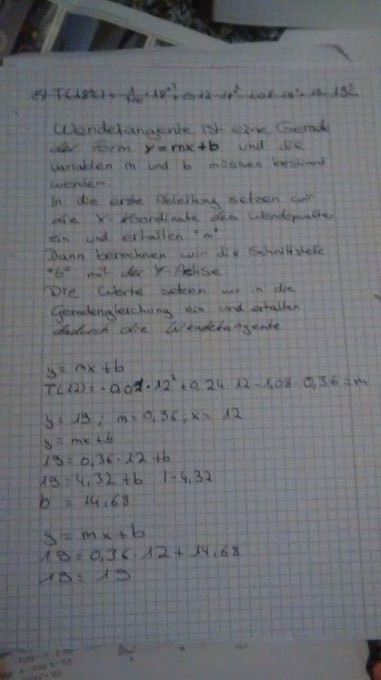 Wendetangente ist eine Gerade
der Form y=mx+b und die
Variablen m und b müssen bestimmt
werden
In die erste Ableitung setzen wir
die X-Koordinate des Wendepunktes
ein und erhalten "m"
Dann berechnen wir die Schnittstelle
"b" mit der Y-Achse
Die Werte setzen wir in die
Geradengleichung ein und erhalten
dadurch die Wendetangente
y = mx + b
T(12) = -0,01 · 12² + 0,24 · 12 - 1,08 = 0,36 = m
y = 19 ; m = 0,36 ; x = 12
y = mx + b
19 = 0,36 · 12 + b
19 = 4,32 + b | - 4,32
b = 14,68
y = mx + b
19 = 0,36 · 12 + 14,68
19 = 19